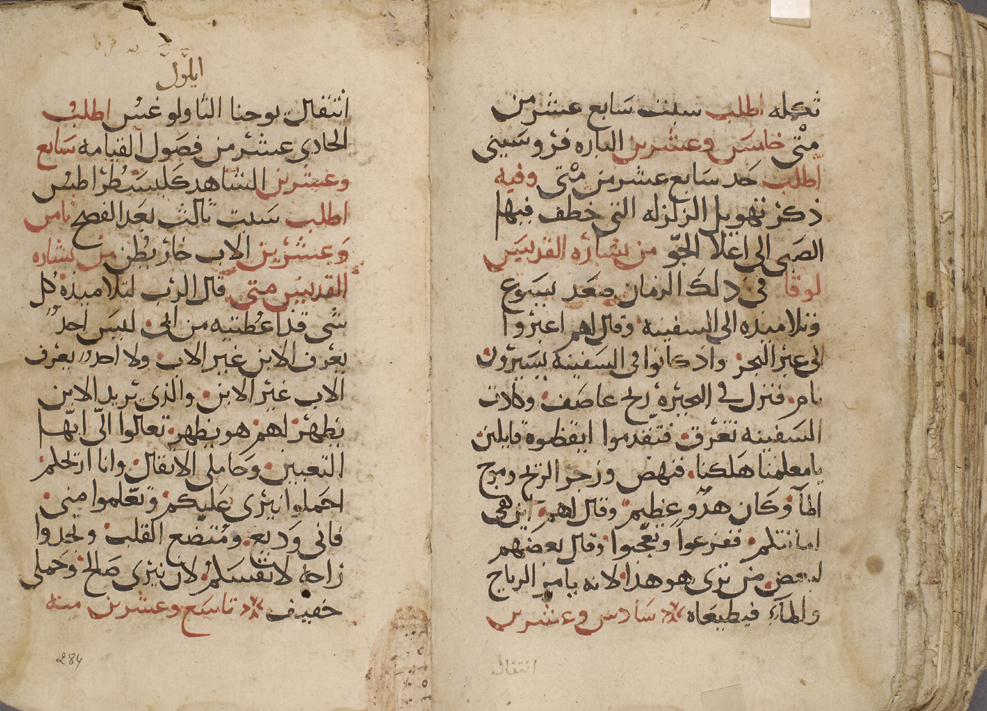 تكله اطلب سبت سابع عشر من
متى خامس وعشرين الباره فروسيني
اطلب حد سابع عشر من متى وفيه
ذكر تهويل الزلزله التي خطف فيها
الصبي الى اعلا الجو من بشاره القديس
لوقا في ذلك الزمان صعد يسوع
وتلاميذه الى السفينه وقال لهم اعبروا
الى عبر البحر واذ كانوا في السفينه يسيرون
نام فنزل في البحيره ريح عاصف وكادت
السفينه تغرق فتقدموا ايقظوه قايلين
يا معلمنا هلكنا فنهض وزجر الريح وموج
المآ وكان هدو عظيم وقال لهم اين هي
امانتكم ففزعوا وتعجبوا وقال بعضهم
لبعض من ترى هو هذا لانه يامر الرياح
والمآء فيطيعاه سادس وعشرين
انتقال
ايلول
انتقال يوحنا الثاولوغس اطلب
الحادي عشر من فصول القيامه سابع
وعشرين الشاهد كليسطراطس
اطلب سبت ثالث بعد الفصح ثامن
وعشرين الاب خاريطن من بشاره
القديس متى قال الرب لتلاميذه كل
شي قد اعطيته من ابي ليس احد
يعرف الابن غير الاب ولا احد يعرف
الاب غير الابن والذي يريد الابن
يظهر لهم هو يظهر تعالوا الي ايها
التعبين وحاملي الاثقال وانا اريحكم
احملوا نيري عليكم وتعلموا مني
فاني وديع ومتضع القلب وتجدوا
راحه لانفسكم لان نيري صالح وحملي
خفيف تاسع وعشرين منه
284